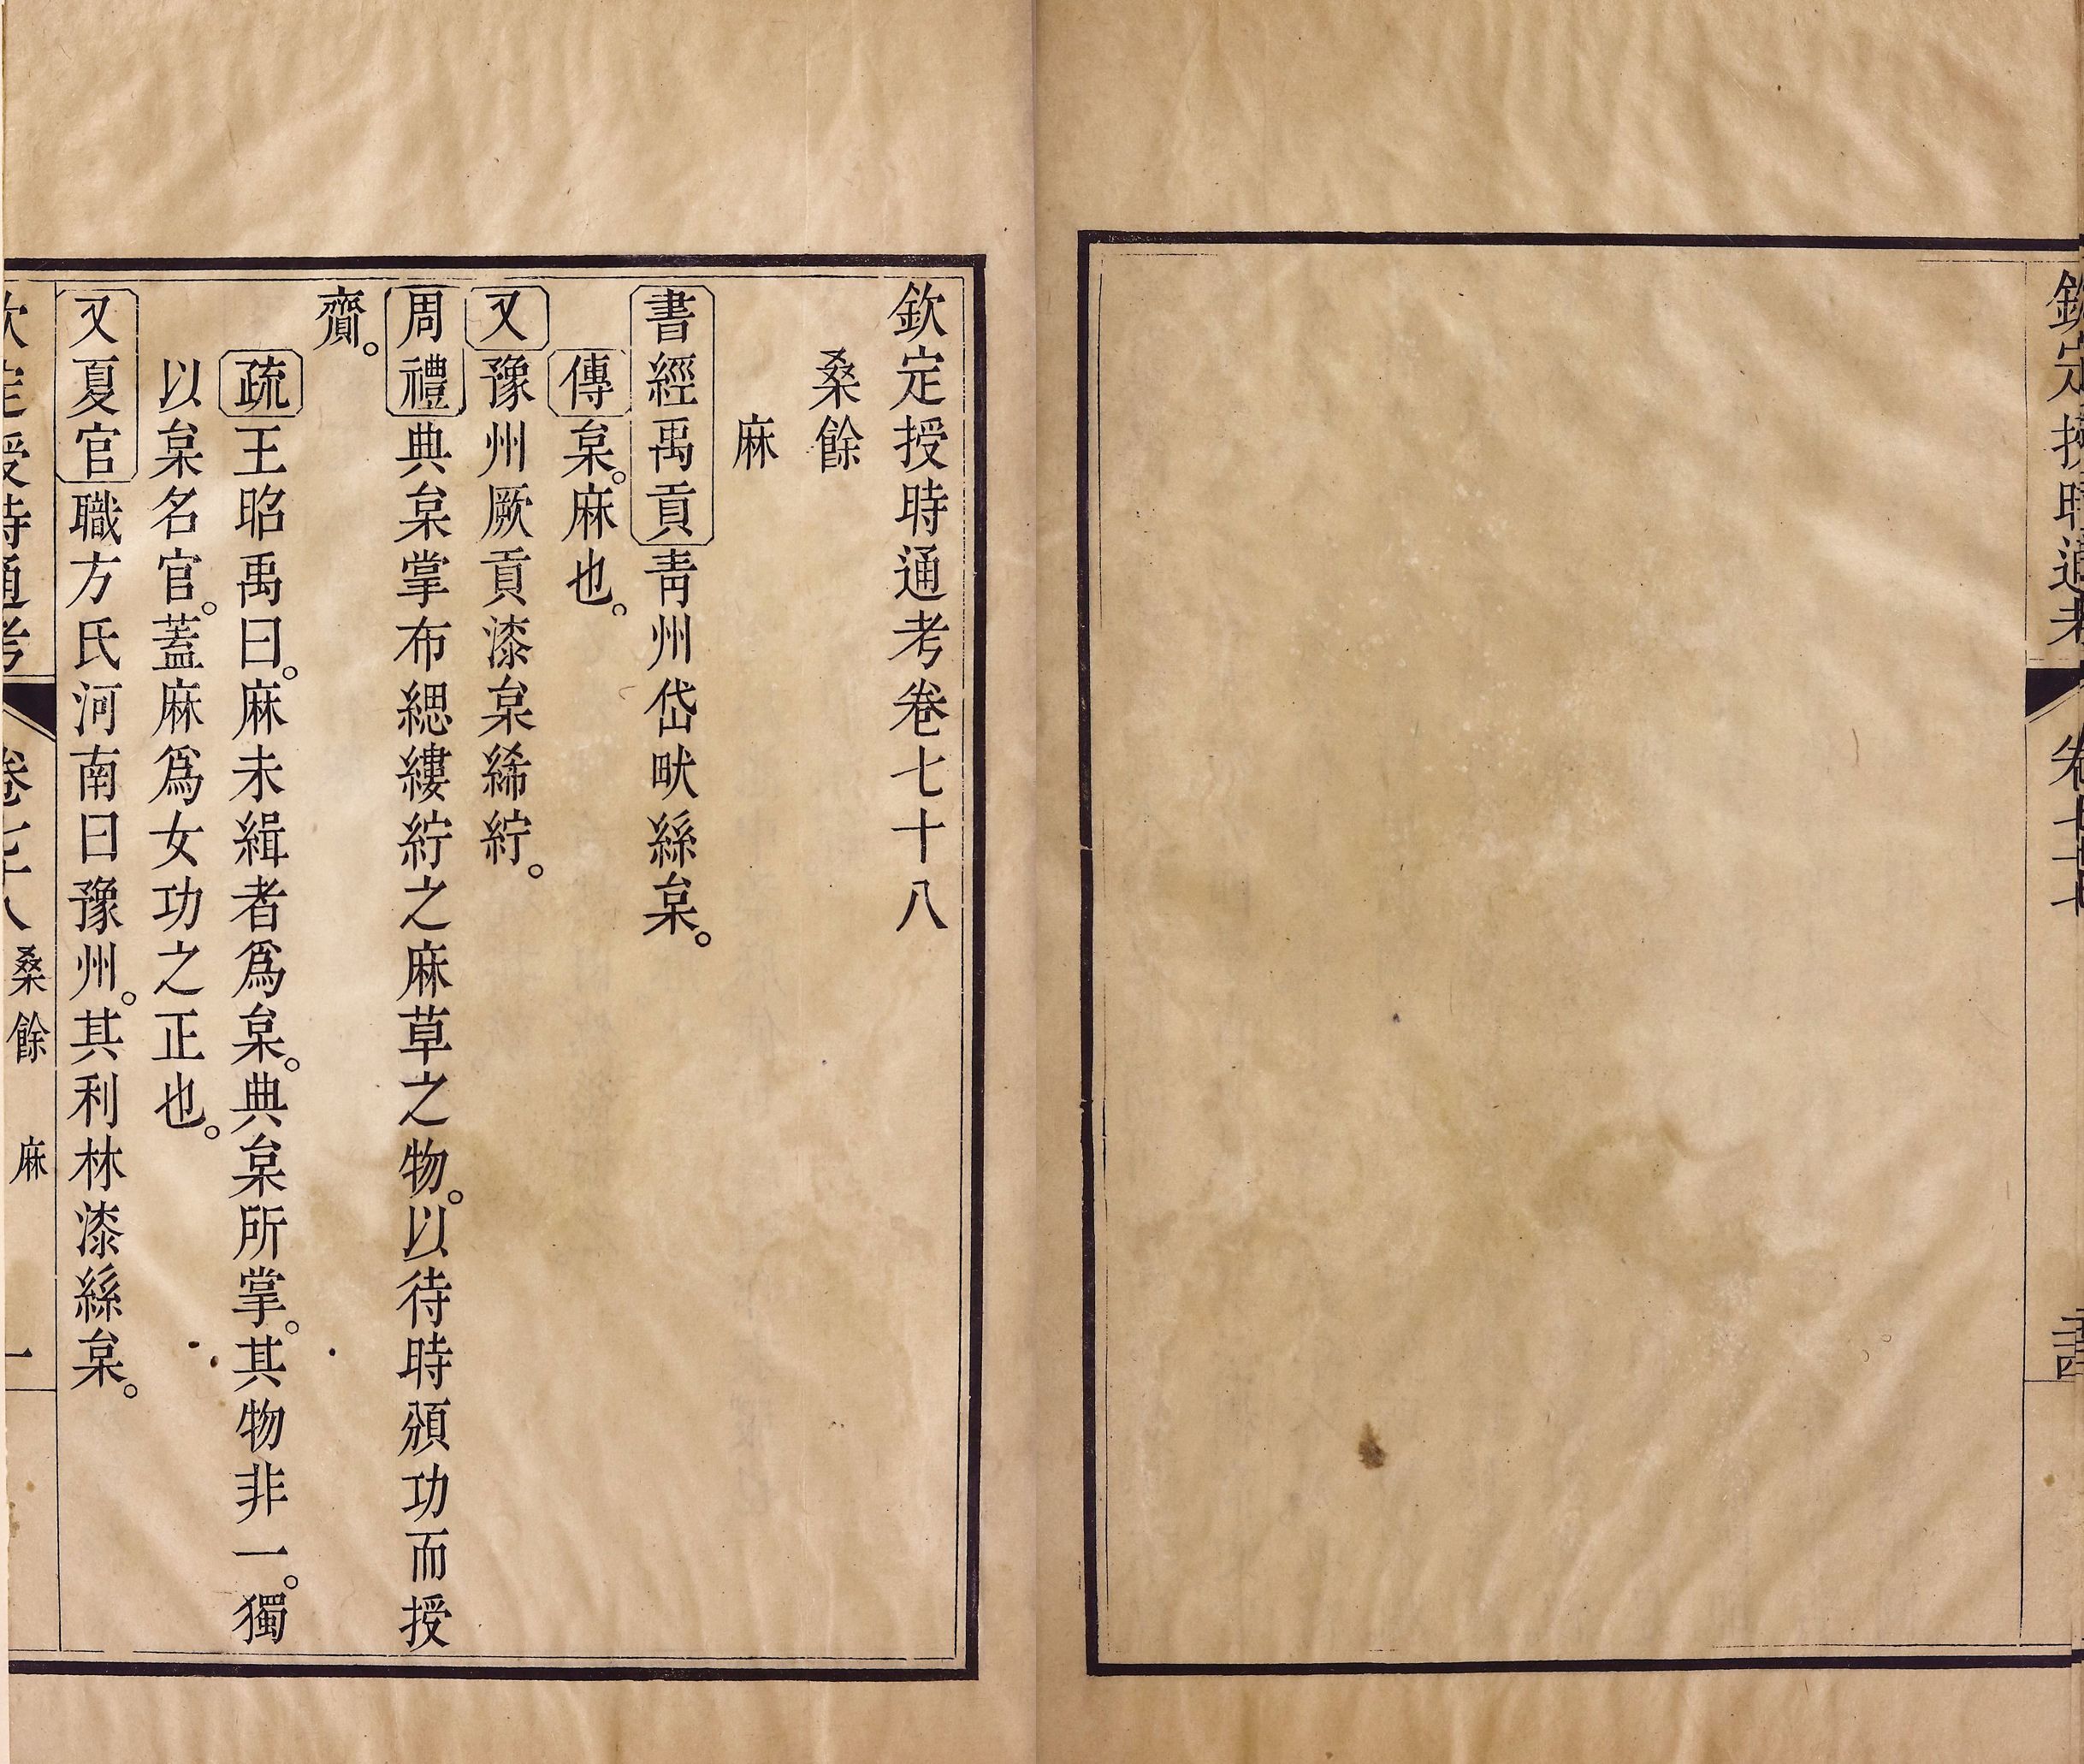 欽定授時通考 卷七十七
欽定授時通考卷七十八
桑餘
麻
書經禹貢青州岱畎絲枲。
傳枲。麻也。
又豫州厥貢漆枲絺紵。
周禮典枲掌布緦縷紵之麻草之物。以待時頒功而授
齎。
疏王昭禹曰。麻未緝者爲枲。典枲所掌。其物非一。獨
以枲名官。蓋麻爲女功之正也。
又夏官職方氏河南曰豫州。其利林漆絲枲。
欽定授時通考 卷七十八 桑餘 麻 一